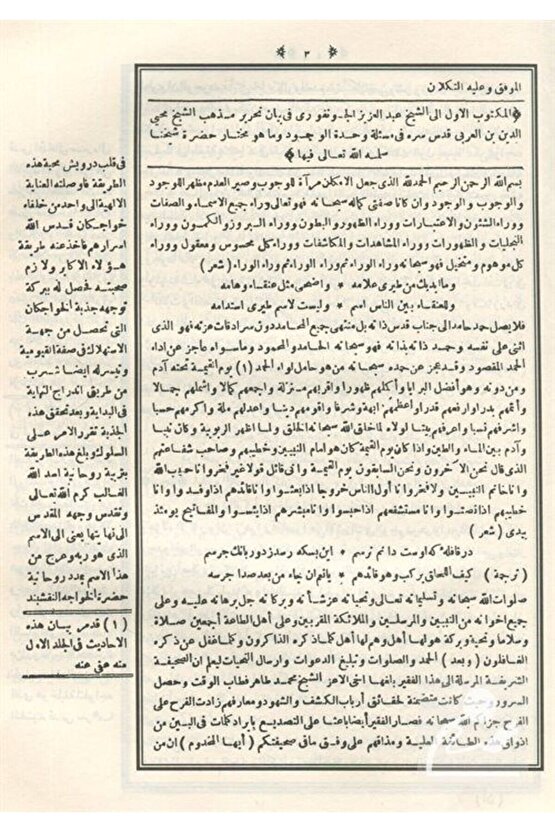 ﴿ ٣ ﴾
الموفق وعليه التكلان
﴿المكتوب الاول الى الشيخ عبد العزيز الجونفورى فى بيان تحرير مذهب الشيخ محيى
الدين بن العربى قدس سره فى مسئلة وحدة الوجود وما هو مختار حضرة شيخنا
سلمه الله تعالى فيها﴾
بسم الله الرحمن الرحيم الحمد لله الذى جعل الامكان مرآة للوجوب وصير العدم مظهر للوجود
والوجوب والوجود وان كانا صفتى كماله سبحانه فهو تعالى وراء جميع الاسماء والصفات
ووراء الشئون والاعتبارات ووراء الظهور والبطون ووراء البروز والكمون ووراء
التجليات والظهورات ووراء المشاهدات والمكاشفات ووراء كل محسوس ومعقول ووراء
كل موهوم ومتخيل فهو سبحانه وراء الوراء ثم وراء الوراء ثم وراء الوراء (شعر)
وما ابديك من طيرى علامه * واضحى مثل عنقاء وهامه
وللعنقاء بين الناس اسم * وليست لاسم طيرى استدامه
فلا يصل حمد حامد الى جناب قدس ذاته بل منتهى جميع المحامد دون سرادقات عزته فهو الذى
اثنى على نفسه وحمد ذاته بذاته فهو سبحانه الحامد والمحمود وما سواه عاجز عن اداء
الحمد المقصود وقد عجز عن حمده سبحانه من هو حامل لواء الحمد (١) يوم القيمة تحته آدم
ومن دونه وهو أفضل البرايا وأكملهم ظهورا واقربهم منزلة واجمعهم كمالا واشملهم جمالا
وأتمهم بدرا وارفعهم قدرا وأعظمهم ابهة وشرفا واقومهم دينا واعدلهم ملة واكرمهم حسبا
واشرفهم نسبا واعرفهم بيتا لولاه لما خلق الله سبحانه الخلق ولما اظهر الربوبية وكان نبيا
وآدم بين الماء والطين واذا كان يوم القيمة كان هو امام النبيين وخطيبهم وصاحب شفاعتهم
الذى قال نحن الآخرون ونحن السابقون يوم القيمة وانى قائل قولا غير فخر وانا حبيب الله
وانا خاتم النبيين ولا فخر وانا أول الناس خروجا اذا بعثوا وانا قائدهم اذا وفدوا وانا
خطيبهم اذا انصتوا وانا مستشفعهم اذا حبسوا وانا مبشرهم اذا يئسوا والمفاتيح يومئذ
بيدى (شعر)
در قافلۀ كه اوست دانم نرسم * اين بسكه رسد ز دور بانك جرسم
(ترجمة) كيف اللحاق بركب وهو قائدهم * يا نعم ان جاء من بعد صدا جرسه
صلوات الله سبحانه وتسليماته تعالى وتحياته عز شأنه وبركاته جل برهانه عليه وعلى
جميع اخوانه من النبيين والمرسلين والملائكة المقربين وعلى أهل الطاعة أجمعين صلاة
وسلاما وتحية وبركة هو لها أهل وهم لها أهل كلما ذكره الذاكرون وكلما غفل عن ذكره
الغافلون (وبعد) الحمد والصلوات وتبليغ الدعوات وارسال التحيات ليعلم ان الصحيفة
الشريفة المرسلة الى هذا الفقير بلغها اخى الاعز الشيخ محمد طاهر فطاب الوقت وحصل
السرور وحيث كانت متضمنة لحقائق أرباب الكشف والشهود ومعارفهم زادت الفرح على
الفرح جزاكم الله سبحانه فصار الفقير أيضا باعثا على التصديع بايراد كلمات فى البين من
اذواق هذه الطائفة العلية ومذاقهم على وفق ما فى صحيفتكم (أيها المخدوم) ان من
فى قلب درويش محبة هذه
الطريقة فاوصلته العناية
الالهية الى واحد من خلفاء
خواجكان قدس الله
اسرارهم فاخذ عنه طريقة
هؤلاء الاكابر ولازم
صحبته فحصل له ببركة
توجهه جذبة الخواجكان
التى تحصل من جهة
الاستهلاك فى صفة القيومية
وتيسر له ايضا شرب
من طريق اندراج النهاية
فى البداية وبعد تحقق هذه
الجذبة تقرر الامر على
السلوك وبلغ هذه الطريقة
بتربية روحانية اسد الله
الغالب كرم الله تعالى
وتقدس وجهه المقدس
الى نهايتها يعنى الى الاسم
الذى هو ربه وعرج من
هذا الاسم بمدد روحانية
حضرة الخواجه النقشبند
(١) قد مر بيان هذه
الاحاديث فى الجلد الاول
منه عفى عنه